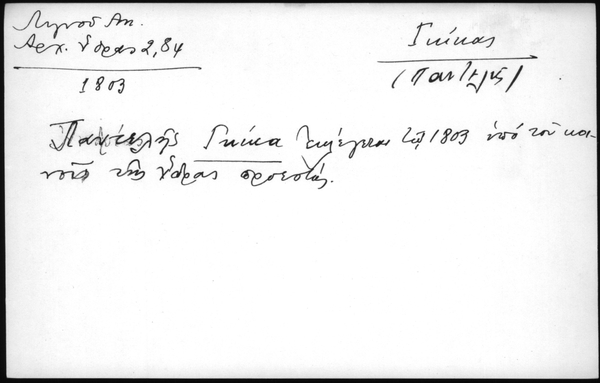 Λιγνοῦ Αν.
Αρχ. Ύδρας 2,84
1803
Γκίκας
(Παντελῆς)
Παντελῆς Γκίκα ἐκλέγεται τῷ 1803 ὑπό τοῦ κοι-
νοῦ τῆς Ὕδρας προεστώς.